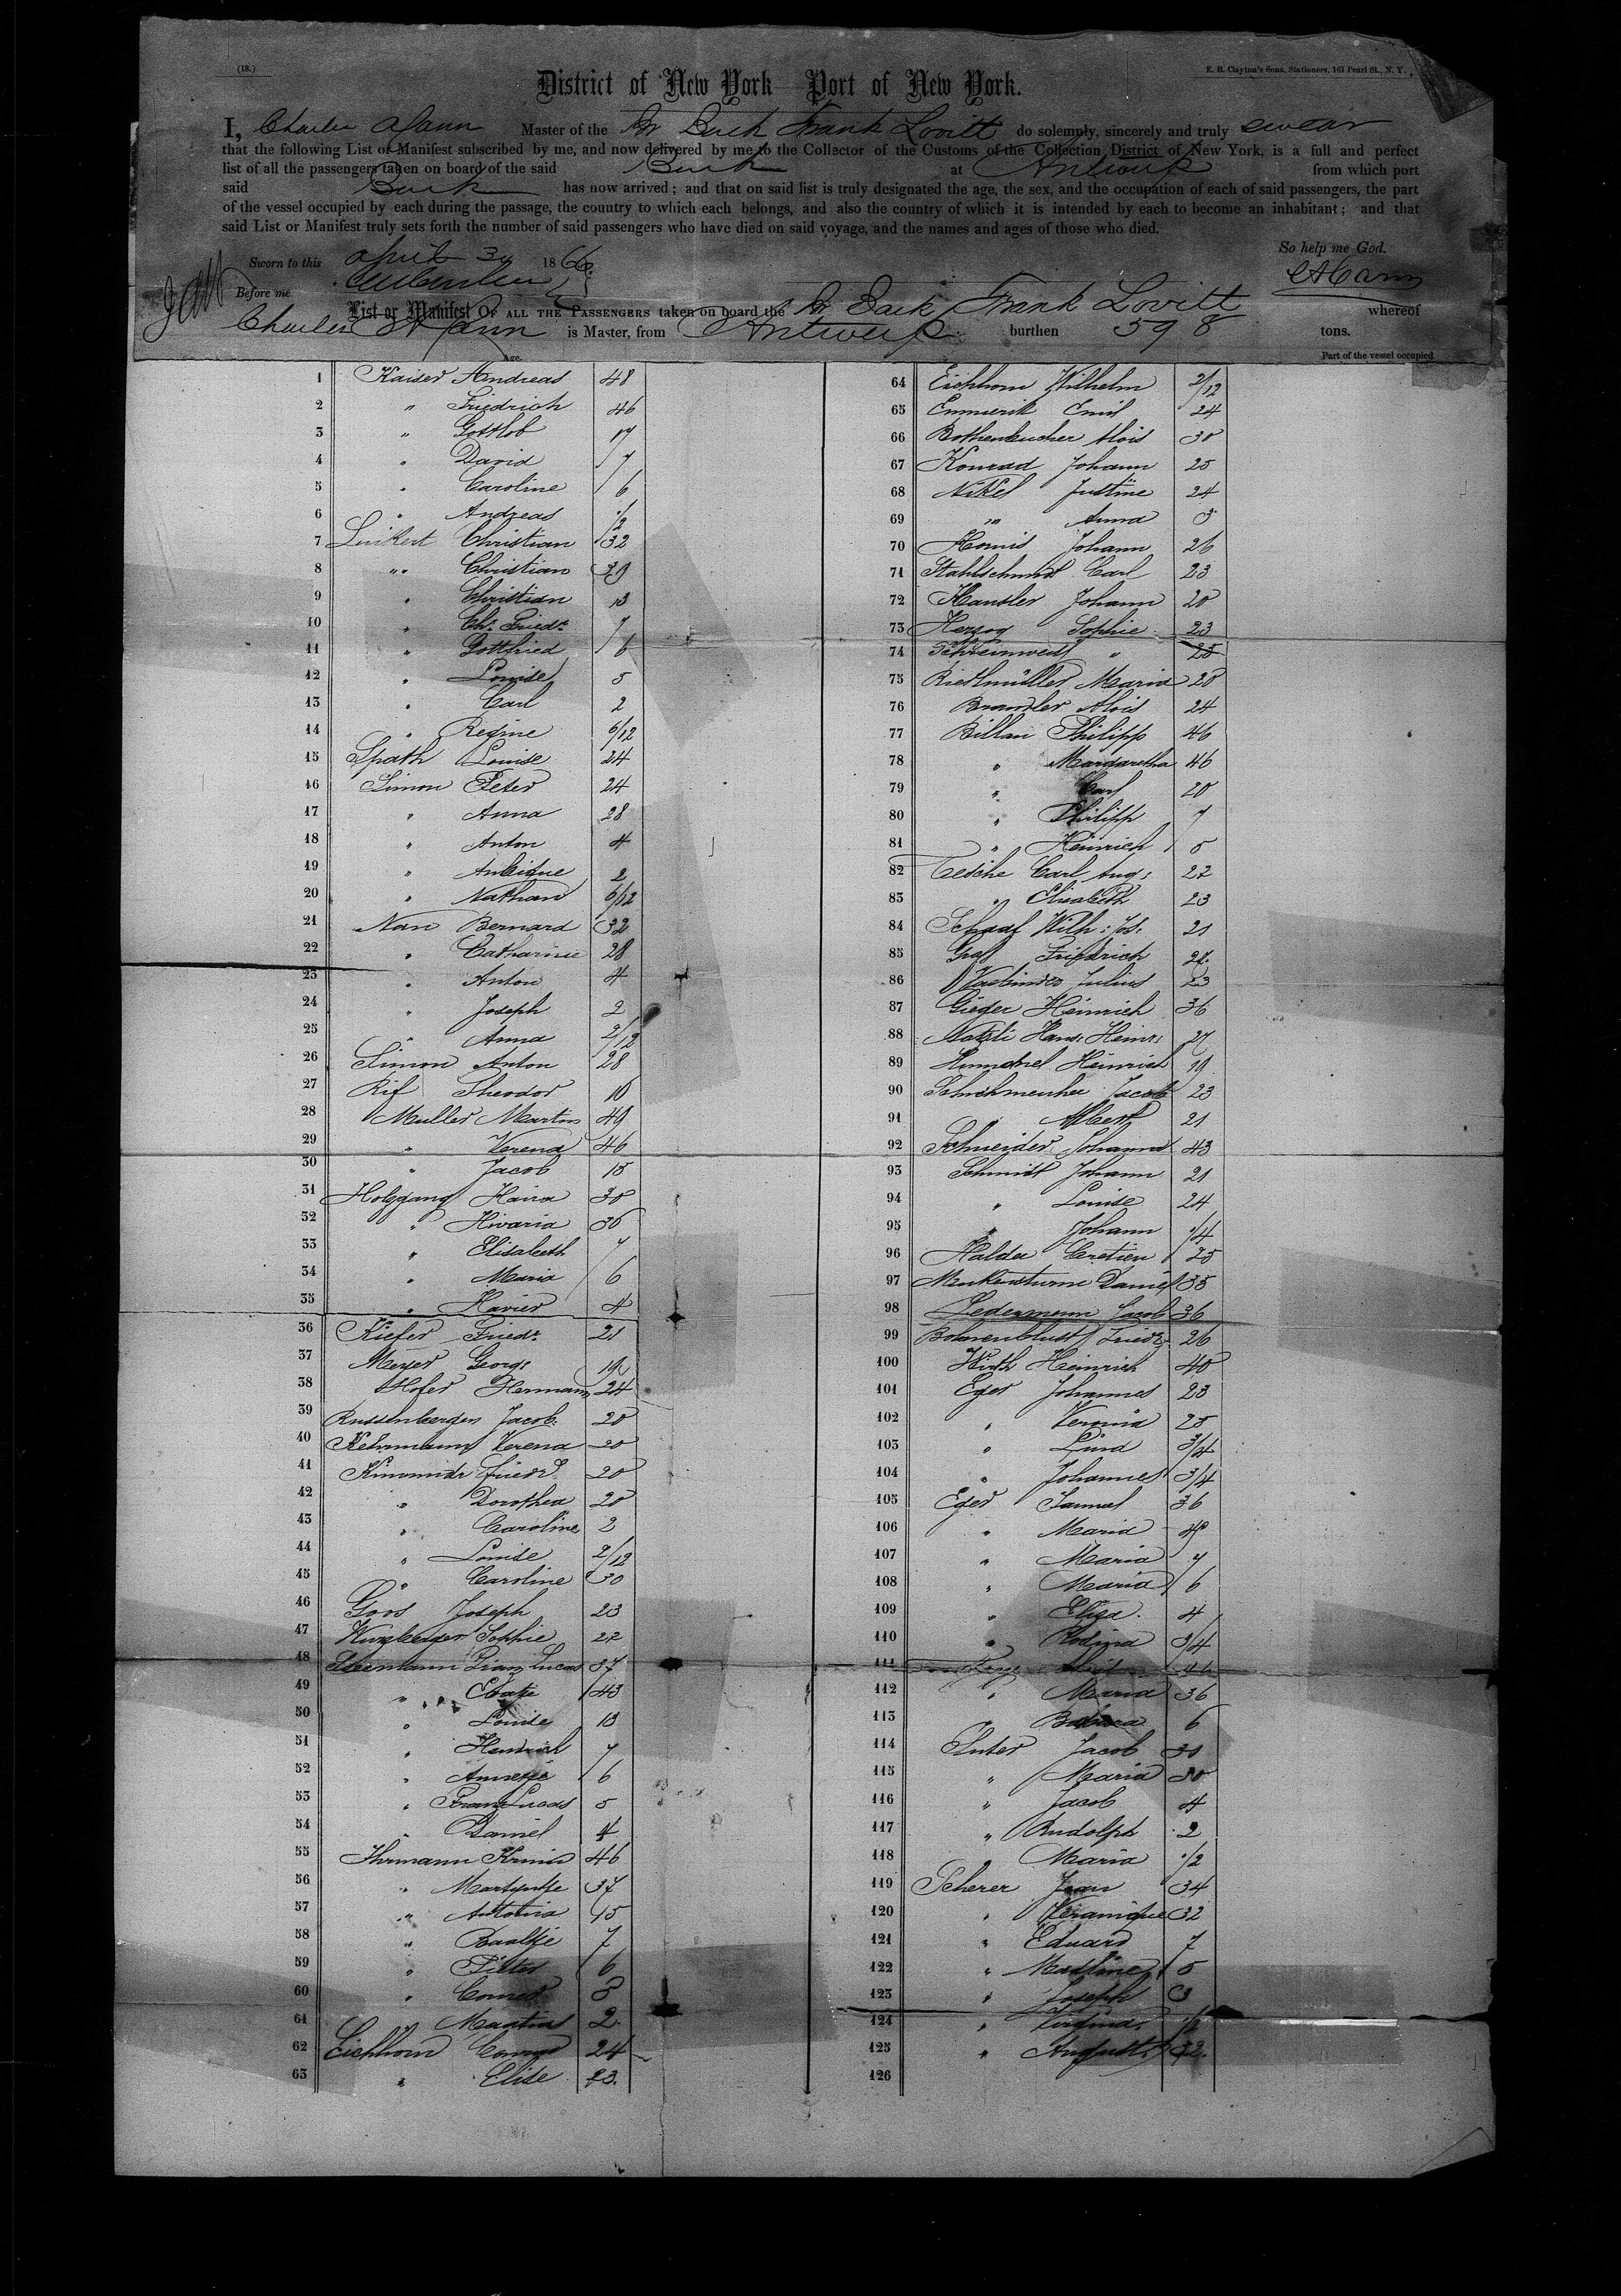 (18.)
E. B. Clayton's Sons, Stationers, 161 Pearl St., N. Y.
District of New York Port of New York.
I, Charles Mann Master of the Br Bark Frank Lovitt do solemnly, sincerely and truly swear
that the following List or Manifest subscribed by me, and now delivered by me to the Collector of the Customs of the Collection District of New York, is a full and perfect
list of all the passengers taken on board of the said Bark at Antwerp from which port
said Bark has now arrived; and that on said list is truly designated the age, the sex, and the occupation of each of said passengers, the part
of the vessel occupied by each during the passage, the country to which each belongs, and also the country of which it is intended by each to become an inhabitant; and that
said List or Manifest truly sets forth the number of said passengers who have died on said voyage, and the names and ages of those who died.
So help me God.
Sworn to this April 30 1866
Before me
List or Manifest OF ALL THE PASSENGERS taken on board the Br Bark Frank Lovitt whereof
Charles Mann is Master, from Antwerp burthen 598 tons.
Age.
Part of the vessel occupied
1 Kaiser Andreas 48
2 " Friedrich 46
3 " Gottlob 17
4 " David 7
5 " Caroline 6
6 " Andreas 1/2
7 Linkert Christian 32
8 " Christian 39
9 " Christian 13
10 " Chr. Friedr. 7
11 " Gottfried 6
12 " Louise 5
13 " Carl 2
14 " Regine 6/12
15 Spath Louise 24
16 Simon Peter 24
17 " Anna 28
18 " Anton 4
19 " 2
20 " Nathan 6/12
21 Nan Bernard 32
22 " Catharine 28
23 " Anton 4
24 " Joseph 2
25 " Anna 2/12
26 Simon Anton 28
27 Rif Theodor 16
28 Muller Martin 49
29 " Verena 46
30 " Jacob 15
31 Holzgang 30
32 " 36
33 " Elisabeth 7
34 " Maria 6
35 " Xavier 4
36 Kiefer Friedr. 21
37 Meyer Georg 19
38 Hofer Hermann 24
39 Russenberger Jacob 20
40 Kehrmann Verena 20
41 Friedr. 20
42 " Dorothea 20
43 " Caroline 2
44 " Louise 2/12
45 " Caroline 30
46 Goos Joseph 23
47 Wurzberger Sophie 22
48 Lucas 37
49 " 43
50 " Louise 13
51 " Hendrich 7
52 " 6
53 " Franz Lucas 5
54 " Daniel 4
55 46
56 " Martyntje 37
57 " Antonia 15
58 " Baaltje 7
59 " Pieter 6
60 " 3
61 Martin 2
62 Eichhorn Conrad 24
63 " Elise 23
64 Eichhorn Wilhelm 2/12
65 Emmerik Emil 24
66 Bothenbucher Alois 30
67 Konrad Johann 25
68 Nikel Justine 24
69 " Anna 3
70 Johann 26
71 Stahlschmidt Carl 23
72 Hansler Johann 20
73 Herzog Sophie 23
74 " 25
75 Riethmüller Maria 20
76 Brandler Alois 24
77 Billan Philipp 46
78 " Margaretha 46
79 " Carl 20
80 " Philipp 7
81 " Heinrich 5
82 Tesche Carl Aug: 22
83 " Elisabeth 23
84 Schaaf Wilh: Jos: 21
85 Graf Friedrich 21
86 Julius 23
87 Gieger Heinrich 36
88 Hans Heinr: 27
89 Heinrich 19
90 Jacob 23
91 " Albert 21
92 Schneider Johanna 43
93 Schmidt Johann 21
94 " Louise 24
95 " Johann 1/4
96 Halder Cretien 25
97 Daniel 35
98 Ledermann Jacob 36
99 Bohnenblust Friedr. 26
100 Hirth Heinrich 40
101 Eger Johannes 23
102 " 25
103 " Lina 3/4
104 " Johannes 3/4
105 Eger Samuel 36
106 " Maria
107 " Maria 7
108 " Maria 6
109 " Eliza 4
110 " Rosina 3/4
111 46
112 " Maria 36
113 " Babara 6
114 Suter Jacob 30
115 " Maria 30
116 " Jacob 4
117 " Rudolph 2
118 " Maria 1/2
119 Scherer Jean 34
120 " Veranique 32
121 " Eduard 7
122 " Madline 5
123 " Joseph 3
124 " 1/2
125 " August 32
126